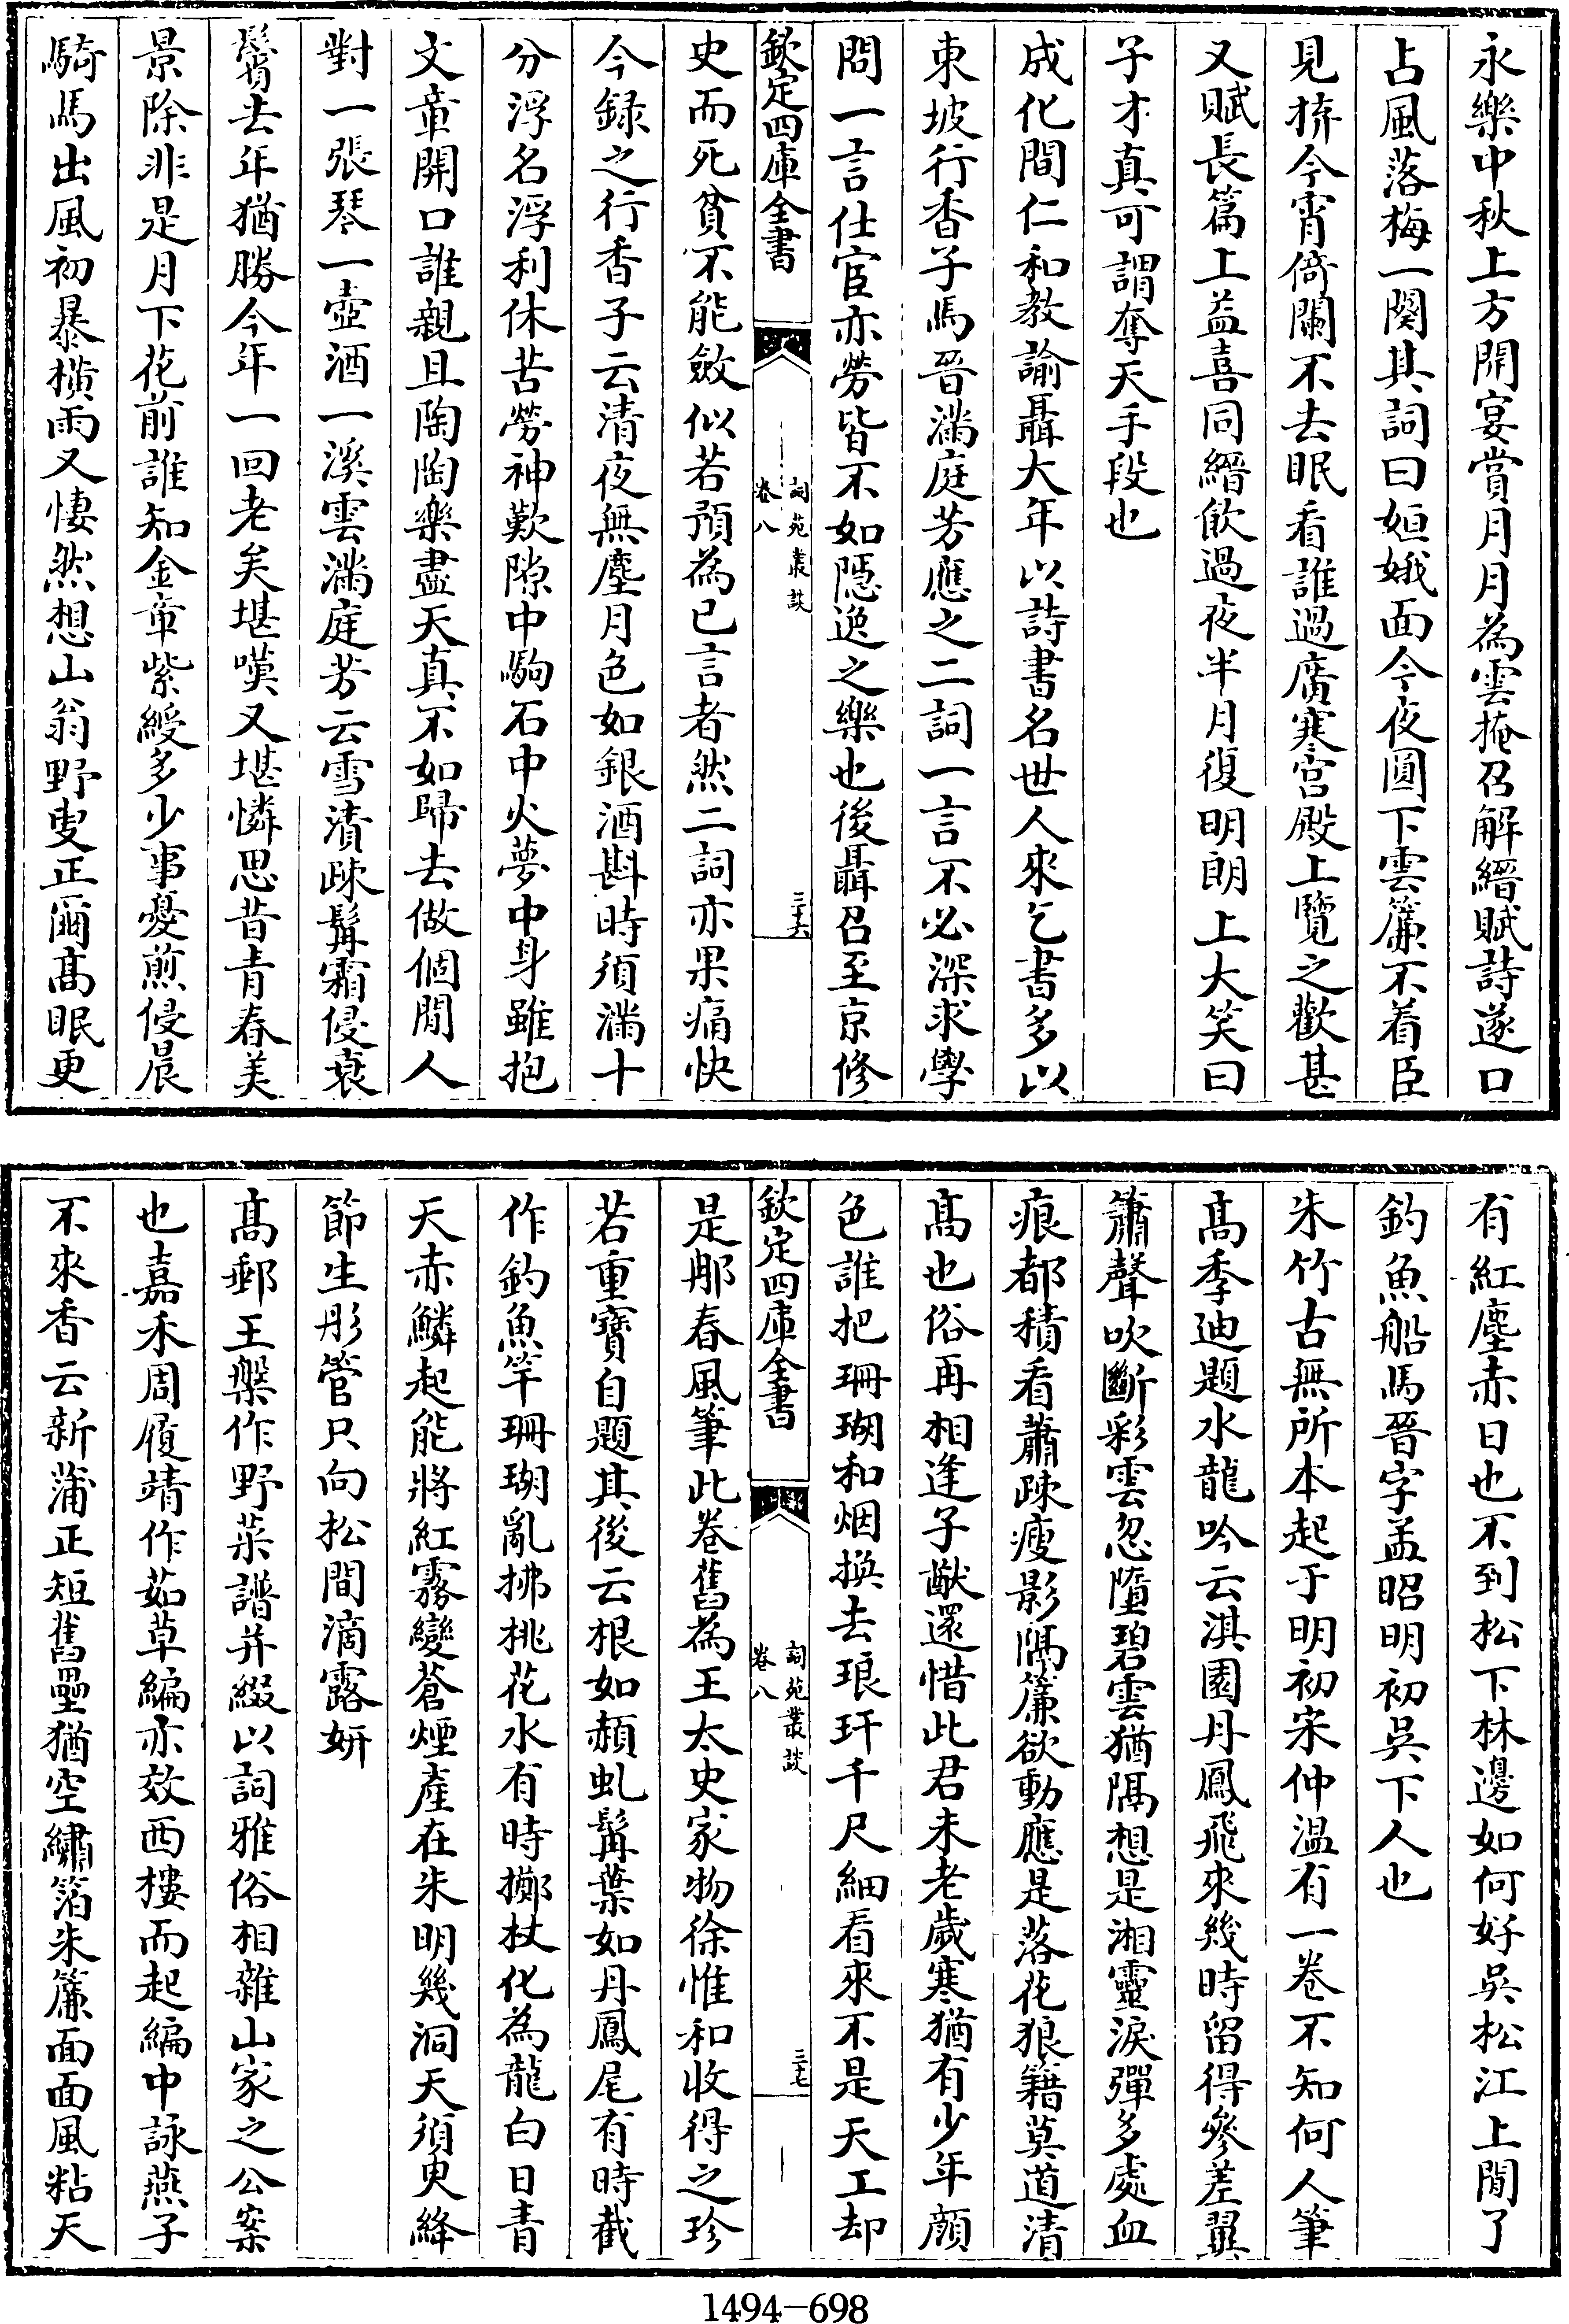 永樂中秋上方開宴賞月月為雲掩召解縉賦詩遂口
占風落梅一闋其詞曰姮娥面今夜圓下雲簾不着臣
見拚今宵倚闌不去眠看誰過廣寒宫殿上覽之歡甚
又賦長篇上益喜同縉飲過夜半月復明朗上大笑曰
子才真可謂奪天手段也
成化間仁和教諭聶大年以詩書名世人來乞書多以
東坡行香子馬晉滿庭芳應之二詞一言不必深求學
問一言仕宦亦勞皆不如隠逸之樂也後聶召至京修
欽定四庫全書
詞苑叢談
卷八
三十六
史而死貧不能斂似若預為已言者然二詞亦果痛快
今録之行香子云清夜無塵月色如銀酒斟時須滿十
分浮名浮利休苦勞神歎隙中駒石中火夢中身雖抱
文章開口誰親且陶陶樂盡天真不如歸去做個閒人
對一張琴一壺酒一溪雲滿庭芳云雪漬疎髯霜侵衰
鬢去年猶勝今年一回老矣堪嘆又堪憐思昔青春美
景除非是月下花前誰知金章紫綬多少事憂煎侵晨
騎馬出風初暴横雨又悽然想山翁野叟正爾髙眠更
有紅塵赤日也不到松下林邊如何好吳松江上閒了
釣魚船馬晉字孟昭明初吳下人也
朱竹古無所本起于明初宋仲温有一卷不知何人筆
髙季迪題水龍吟云淇園丹鳳飛來幾時留得參差翼
簫聲吹斷彩雲忽墮碧雲猶隔想是湘靈淚彈多處血
痕都積看蕭疎瘦影隔簾欲動應是落花狼籍莫道清
髙也俗再相逢子猷還惜此君未老歲寒猶有少年顔
色誰把珊瑚和烟換去琅玕千尺細看來不是天工却
欽定四庫全書
詞苑叢談
卷八
三十七
是那春風筆此卷舊為王太史家物徐惟和收得之珍
若重寶自題其後云根如頳虬髯葉如丹鳳尾有時截
作釣魚竿珊瑚亂拂桃花水有時擲杖化為龍白日青
天赤鱗起能將紅霧變蒼煙產在朱明幾洞天須臾絳
節生彤管只向松間滴露妍
髙郵王槃作野菜譜并綴以詞雅俗相雜山家之公案
也嘉禾周履靖作茹草編亦效西樓而起編中詠燕子
不來香云新蒲正短舊壘猶空繡箔朱簾面面風粘天
1494-698